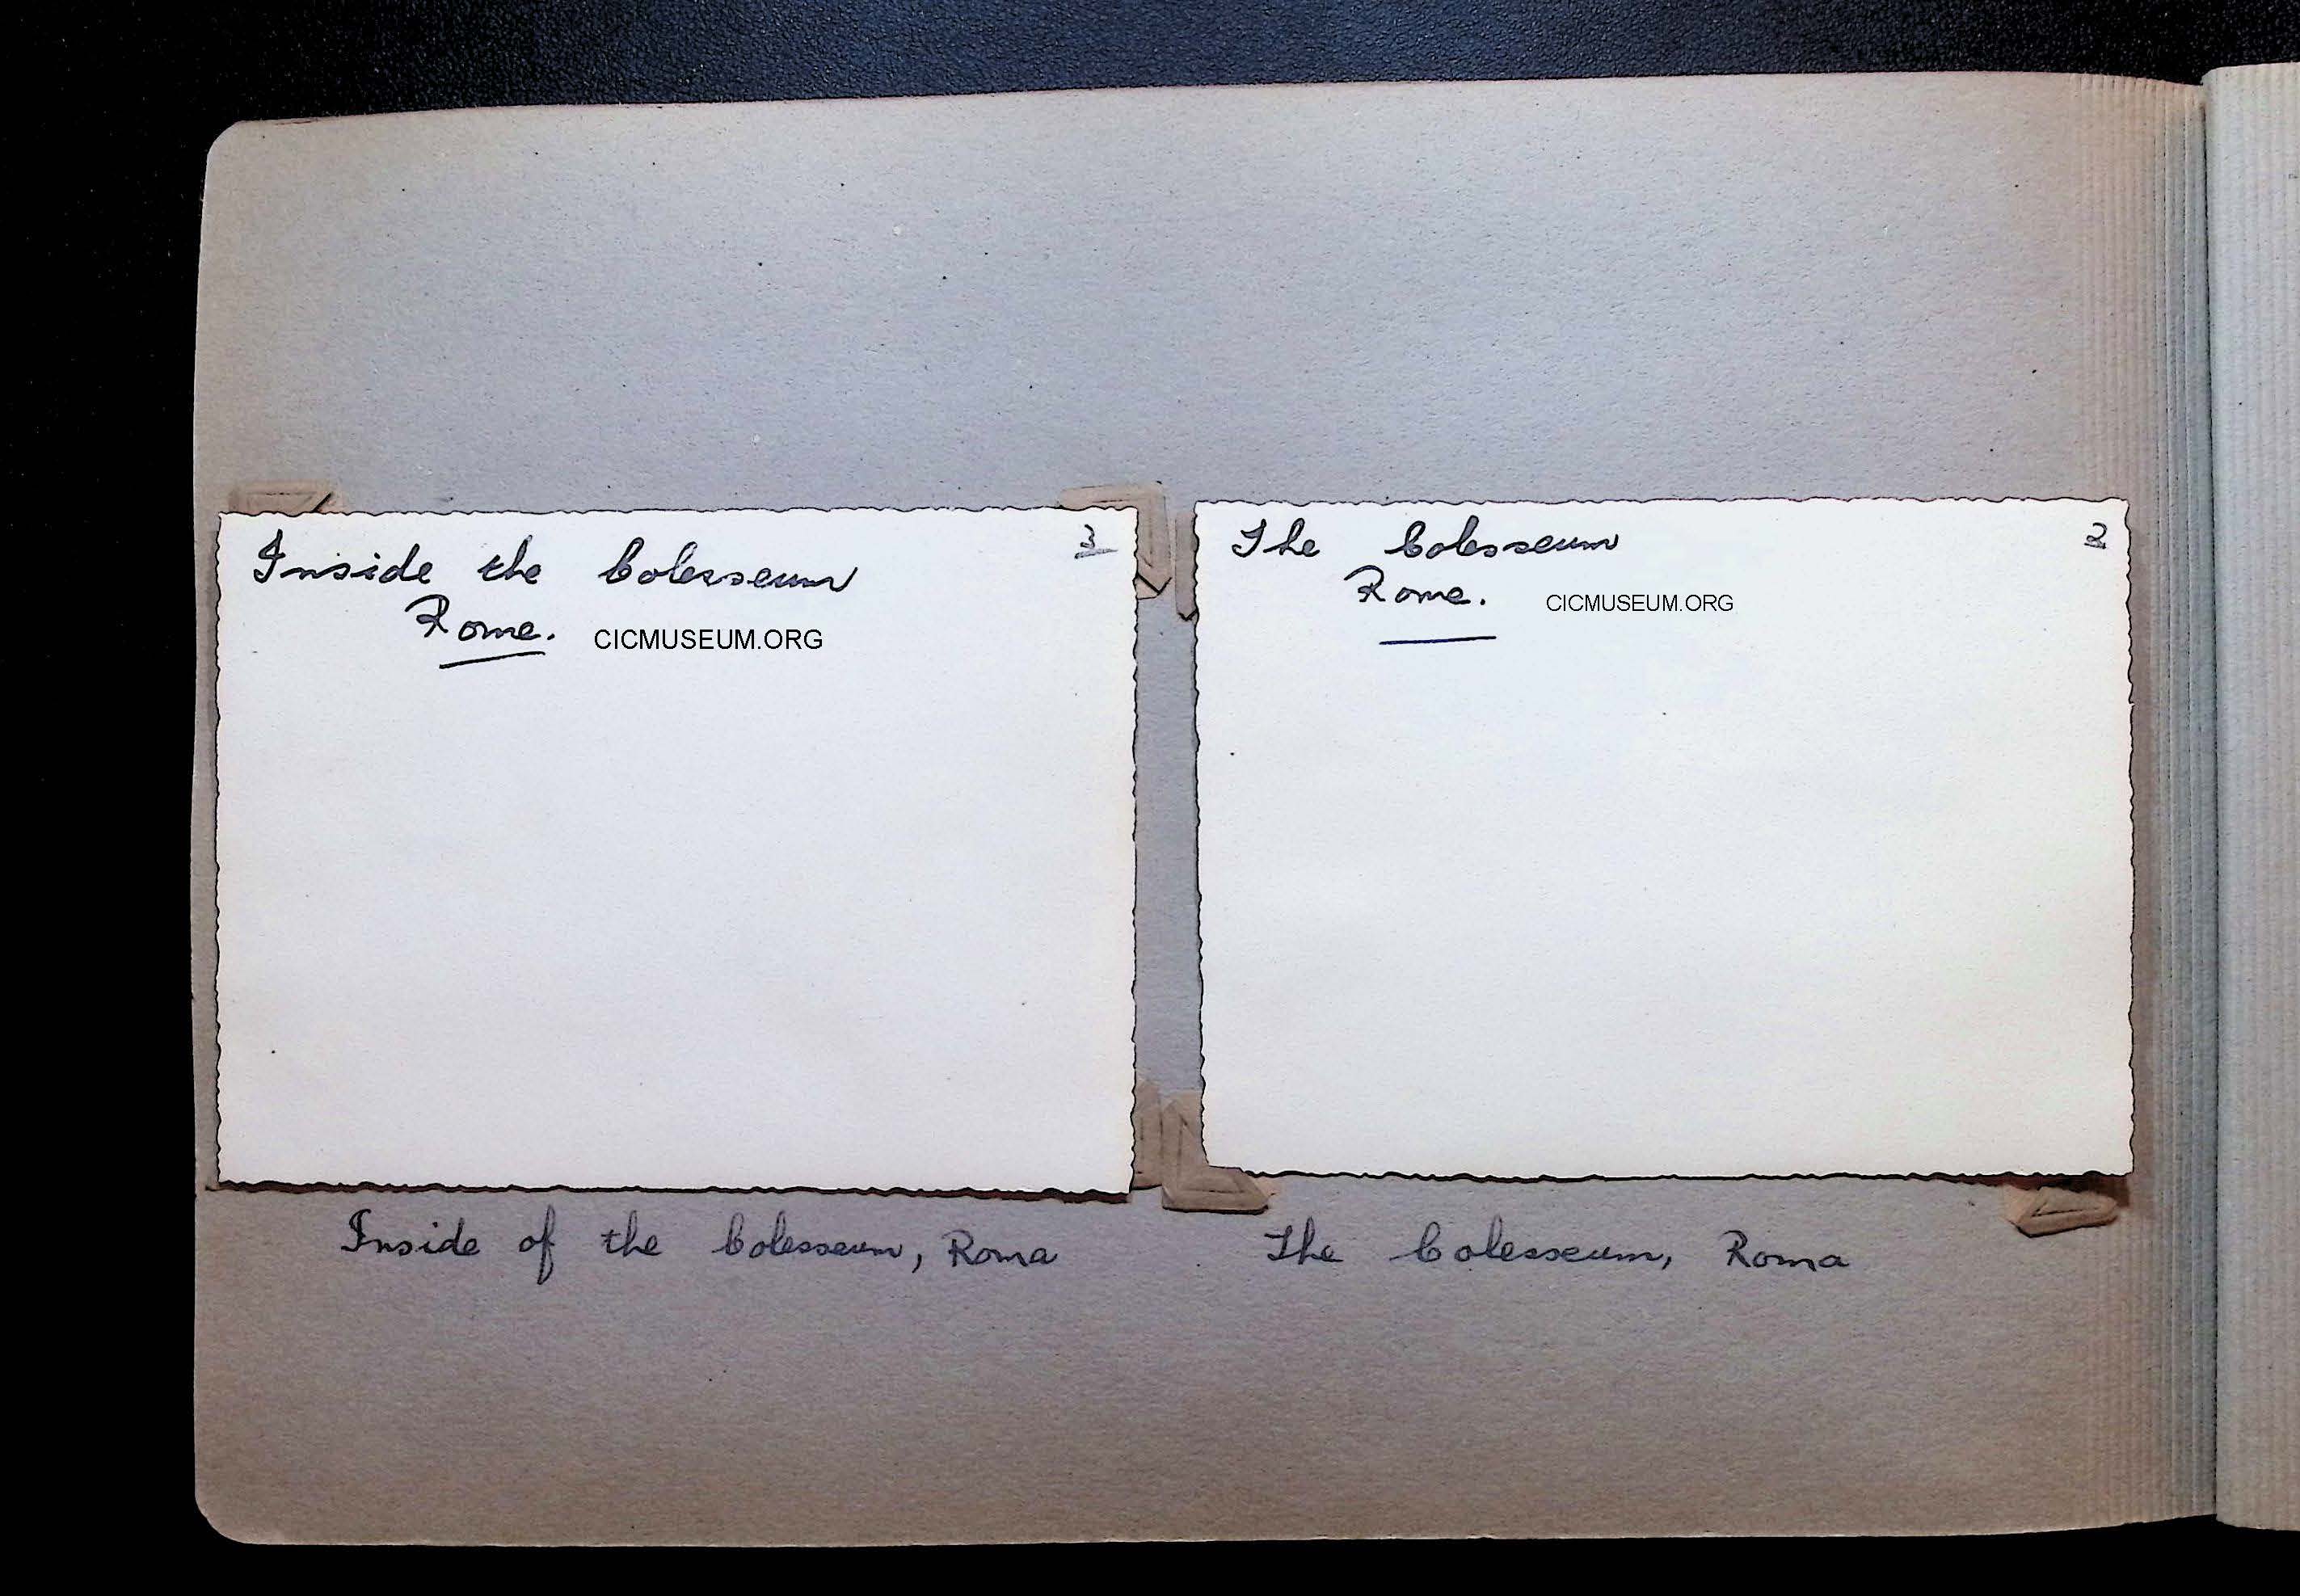 Inside the Colesseum
3
Rome.
CICMUSEUM.ORG
The Colesseum
2
Rome.
CICMUSEUM.ORG
Inside of the Colesseum, Roma
The Colesseum, Roma